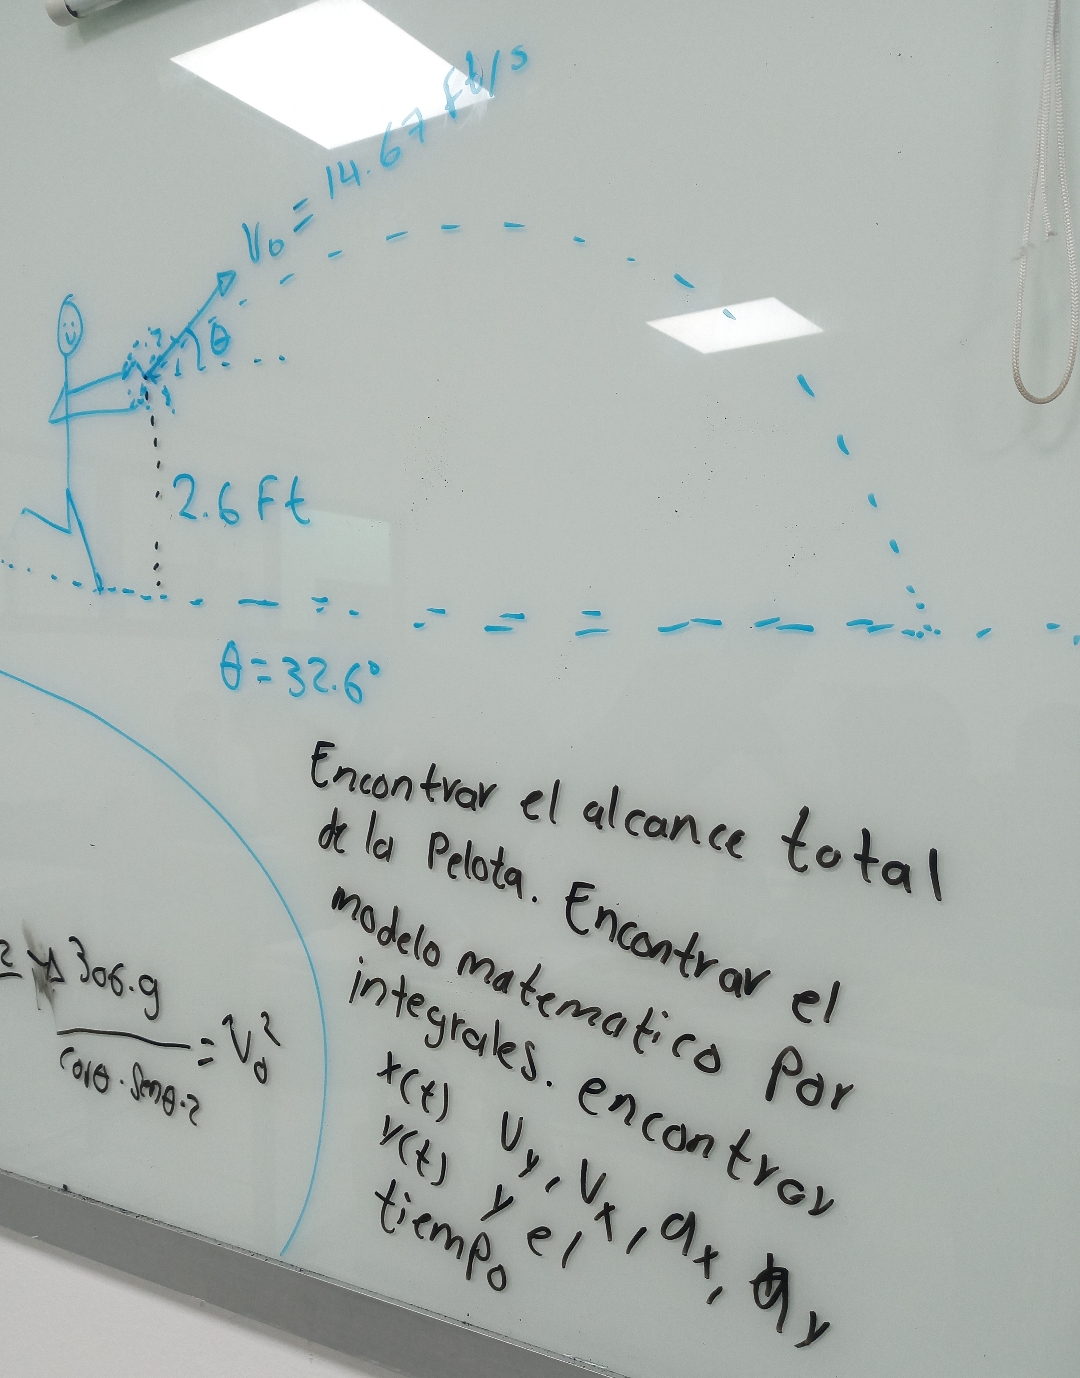 V₀ = 14.67 Ft/s
θ
2.6 Ft
θ = 32.6°
Encontrar el alcance total
de la Pelota. Encontrar el
modelo matematico Por
integrales. encontrar
x(t) Vy, Vx, ax, ay
y(t) y el
tiempo
306.g
= V₀²
cosθ · Senθ·2